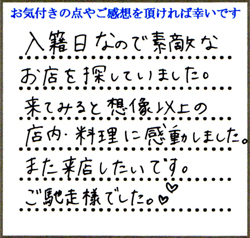 お気付きの点やご感想を頂ければ幸いです
入籍日なので素敵な
お店を探していました。
来てみると想像以上の
店内・料理に感動しました。
また来店したいです。
ご馳走様でした。♡♡